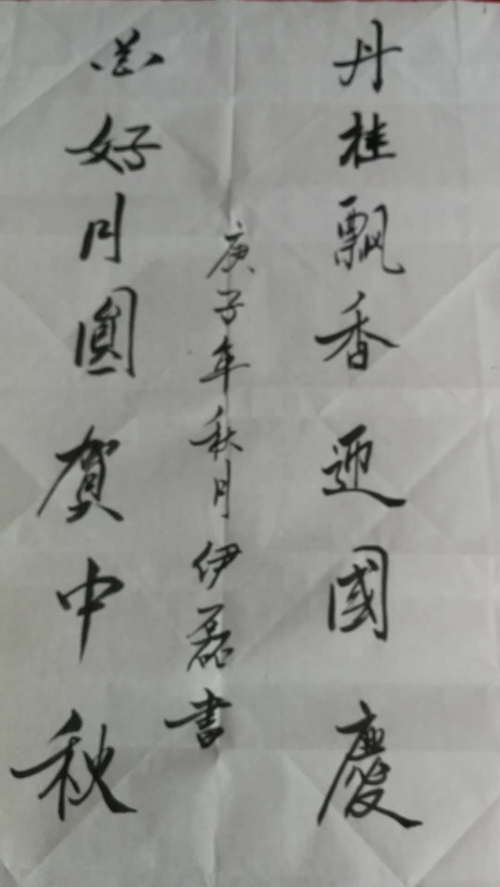 丹桂飄香迎國慶
花好月圓賀中秋
庚子年秋月伊磊書